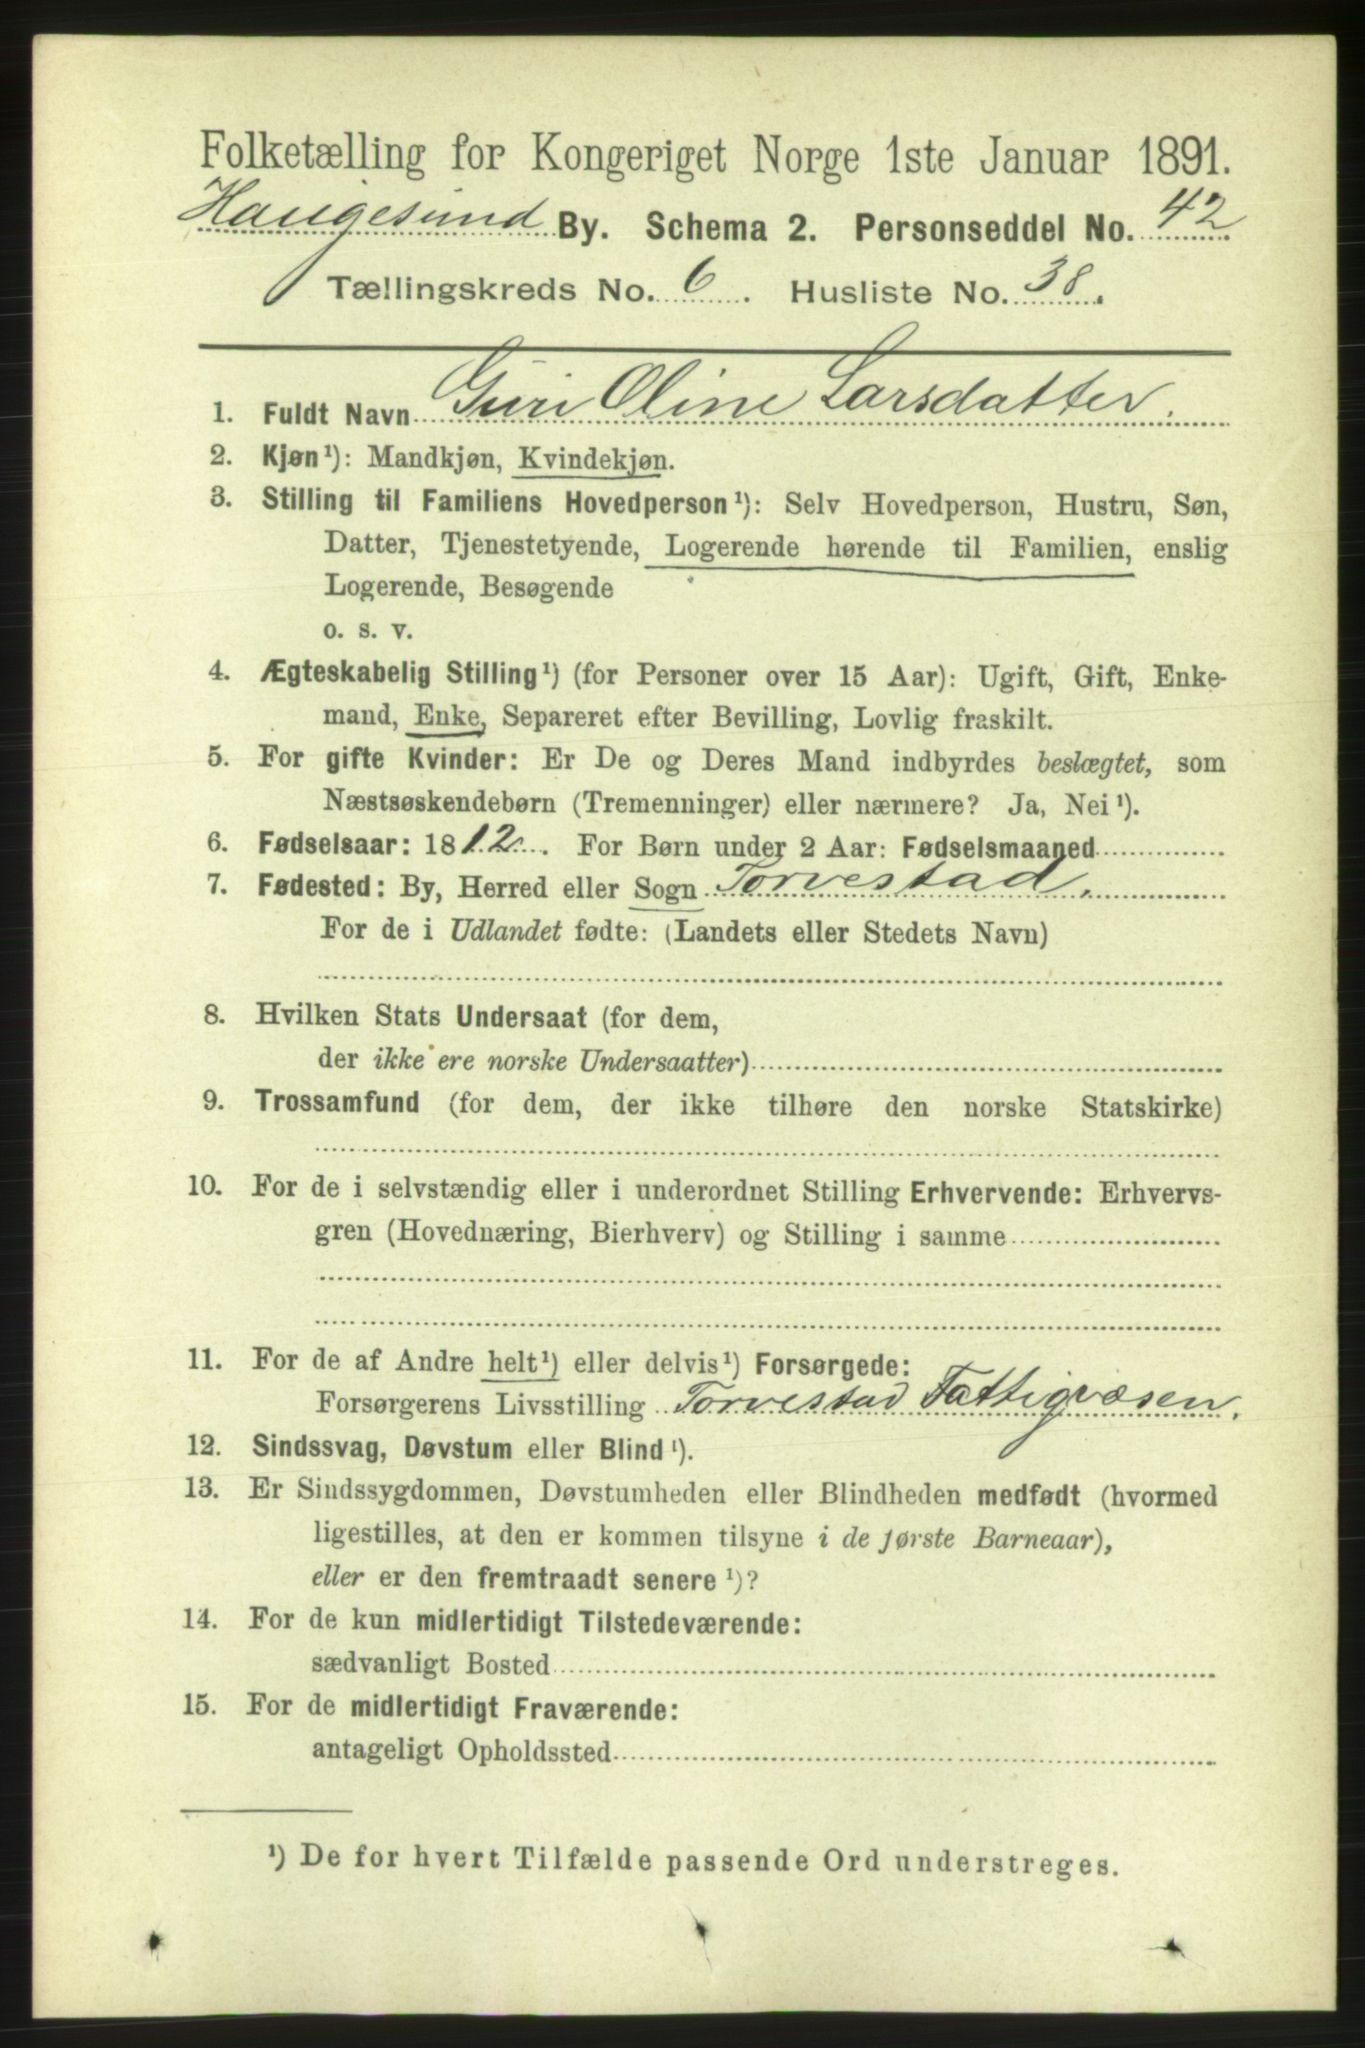 Folketælling for Kongeriget Norge 1ste Januar 1891.
Haugesund By. Schema 2. Personseddel No. 42
Tællingskreds No. 6. Husliste No. 38.
1. Fuldt Navn Guri Oline Larsdatter.
2. Kjøn¹): Mandkjøn, Kvindekjøn.
3. Stilling til Familiens Hovedperson¹): Selv Hovedperson, Hustru, Søn,
Datter, Tjenestetyende, Logerende hørende til Familien, enslig
Logerende, Besøgende
o. s. v.
4. Ægteskabelig Stilling¹) (for Personer over 15 Aar): Ugift, Gift, Enke-
mand, Enke, Separeret efter Bevilling, Lovlig fraskilt.
5. For gifte Kvinder: Er De og Deres Mand indbyrdes beslægtet, som
Næstsøskendebørn (Tremenninger) eller nærmere? Ja, Nei¹).
6. Fødselsaar: 1812. For Børn under 2 Aar: Fødselsmaaned
7. Fødested: By, Herred eller Sogn Torvestad.
For de i Udlandet fødte: (Landets eller Stedets Navn)
8. Hvilken Stats Undersaat (for dem,
der ikke ere norske Undersaatter)
9. Trossamfund (for dem, der ikke tilhøre den norske Statskirke)
10. For de i selvstændig eller i underordnet Stilling Erhvervende: Erhvervs-
gren (Hovednæring, Bierhverv) og Stilling i samme
11. For de af Andre helt¹) eller delvis¹) Forsørgede:
Forsørgerens Livsstilling Torvestad Fattigvæsen.
12. Sindssvag, Døvstum eller Blind¹).
13. Er Sindssygdommen, Døvstumheden eller Blindheden medfødt (hvormed
ligestilles, at den er kommen tilsyne i de første Barneaar),
eller er den fremtraadt senere¹)?
14. For de kun midlertidigt Tilstedeværende:
sædvanligt Bosted
15. For de midlertidigt Fraværende:
antageligt Opholdssted
¹) De for hvert Tilfælde passende Ord understreges.